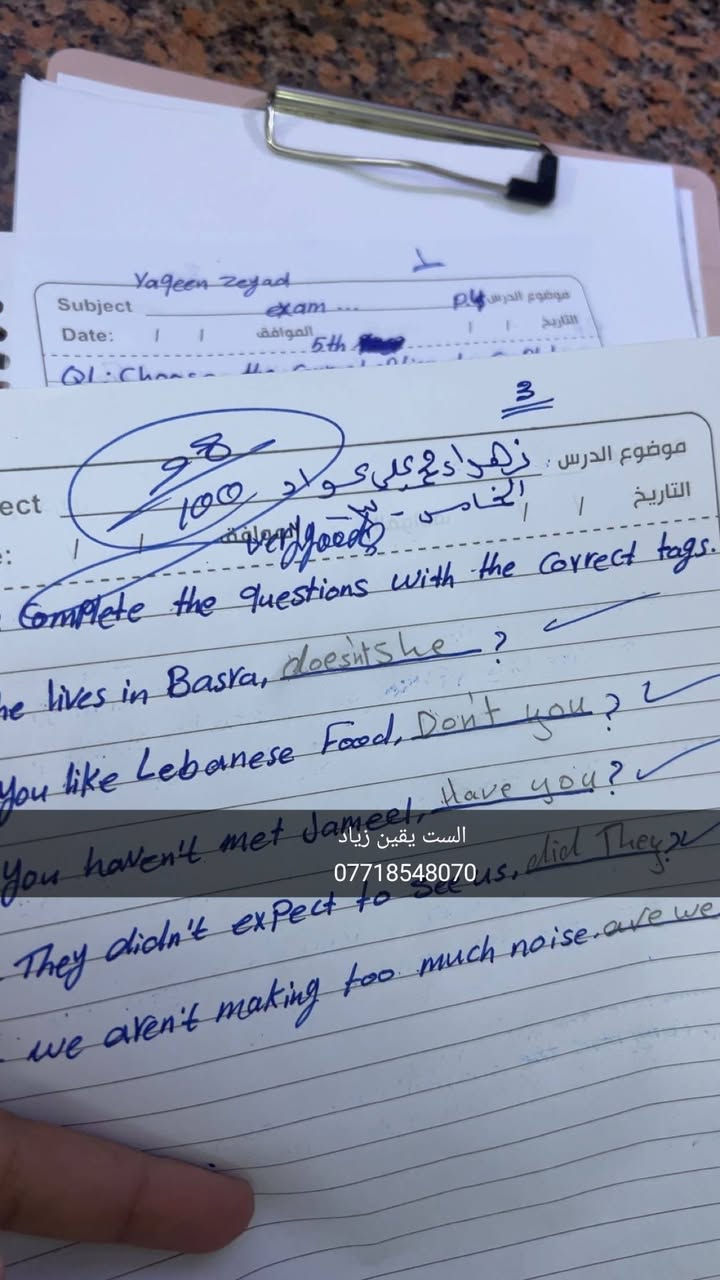 Yaqeen Zeyad
Subject exam ... P.4 موضوع الدرس
Date: / / الموافق / / التاريخ
5th
Q1: Choose the
3
98/100
ect زهراء علي عواد موضوع الدرس:
: / / الموافق الخامس - / / التاريخ
very good
Complete the questions with the correct tags.
he lives in Basra, doesn't she ?
You like Lebanese Food, Don't you ?
You haven't met Jameel, Have you?
الست يقين زياد
07718548070
They didn't expect to see us, did They?
we aren't making too much noise. are we